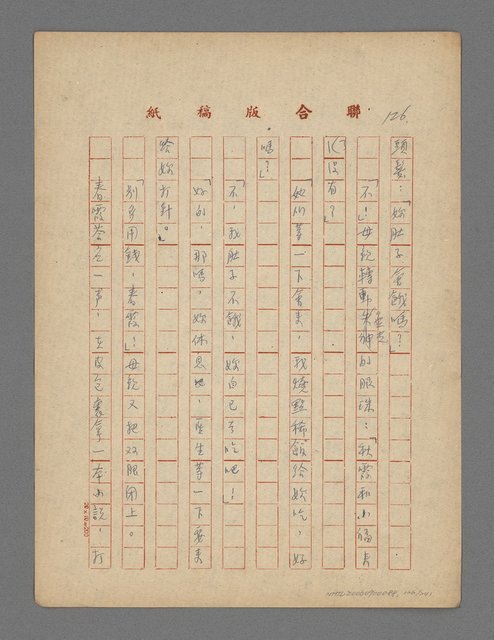 紙稿版合聯
126.
頭髮：「妳肚子會餓嗎？」
「不！」母親轉動失神的眼珠：「秋霞和小福
沒有？」
「她們等一下會來，我燒點稀飯給妳吃，好
嗎？」
「不，我肚子不餓，妳自己去吃吧！」
「好的，那嗎，妳休息吧，醫生等一下要來
給妳打針。」
「別多用錢，春霞？」母親又把双眼闭上。
春霞答應一声，去皮包裏拿一本小說，打
24×25=600